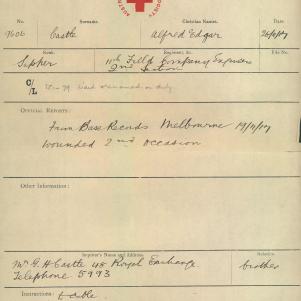 AUST SOCIETY
No. Surname. Christian Names. Date.
7606 Castle Alfred Edgar 26/4/17
Rank. Regiment, &c. File No.
Sapper 11th Field Company Engineers
2nd
C/L
OFFICIAL REPORTS:
From Base Records Melbourne 19/4/17
wounded 2nd occasion
Other Information:
Inquirer's Name and Address. Relation.
Mr G. H. Castle 48 Royal Exchange brother
Telephone 5993
Instructions: Cable